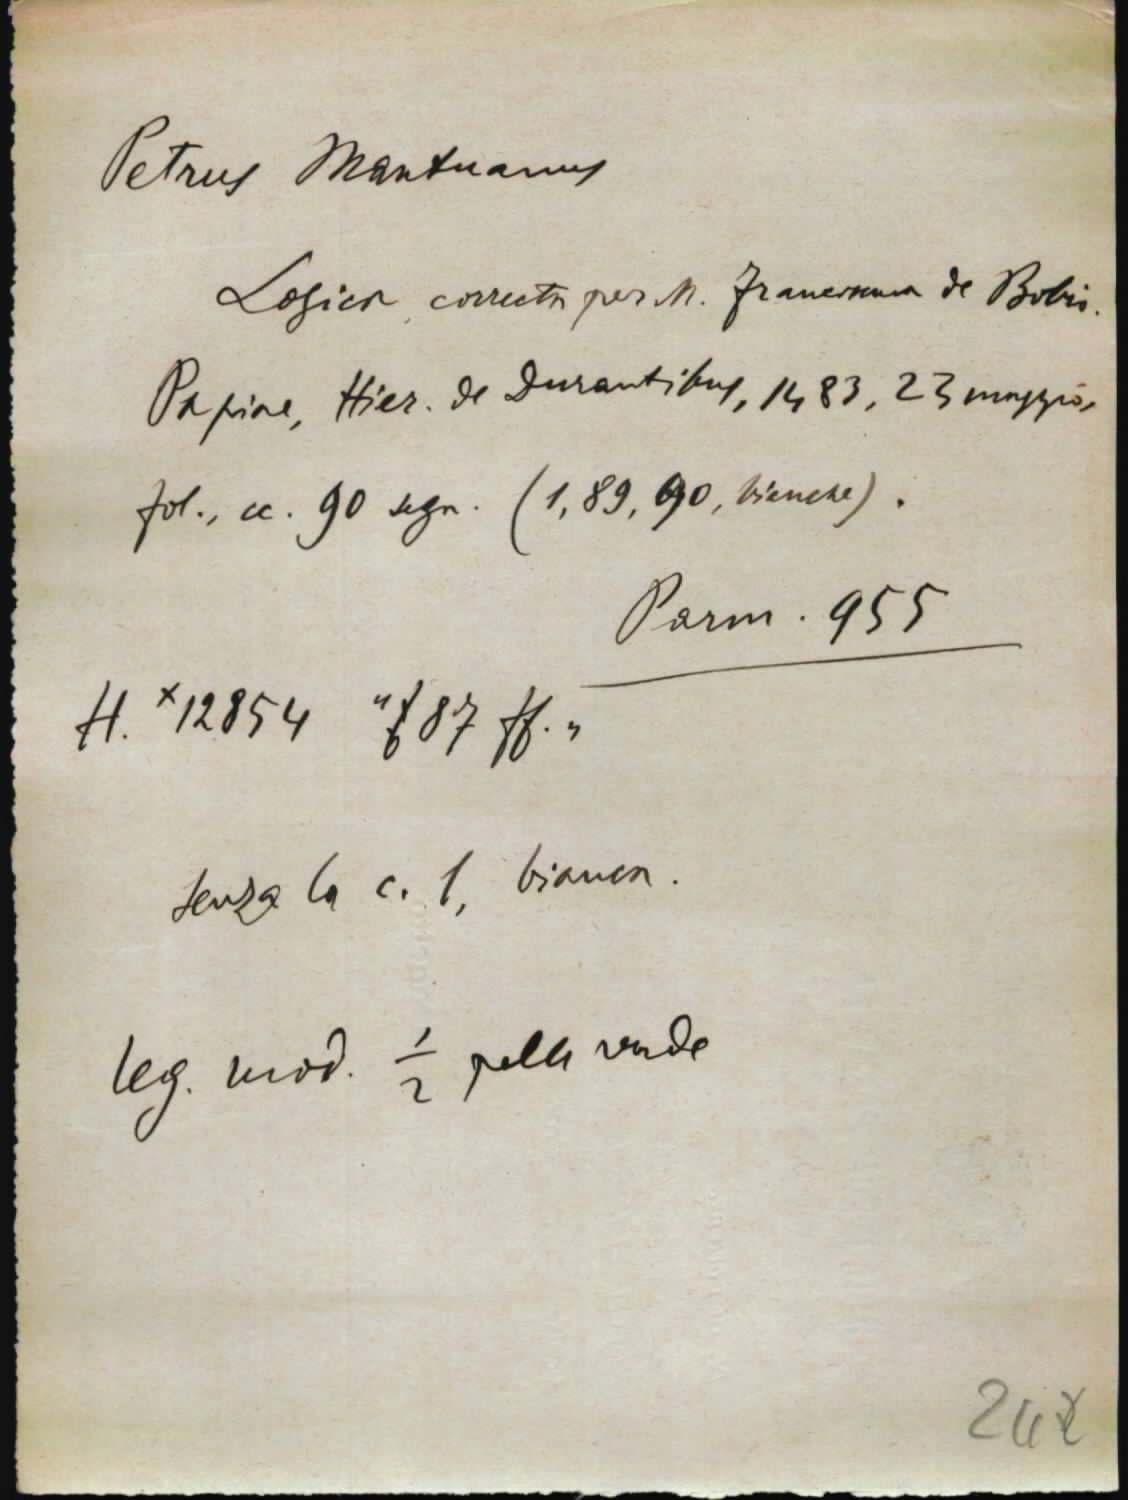 Petrus Mantuanus
Logica correcta per M. Franciscum de Bobio.
Papiae, Hier. de Durantibus, 1483, 23 maggio,
fol., cc. 90 segn. (1, 89, 90, bianche).
Parm. 955
H. *12854 " 87 ff. "
senza la c. 1, bianca.
leg. mod. 1/2 pelle verde